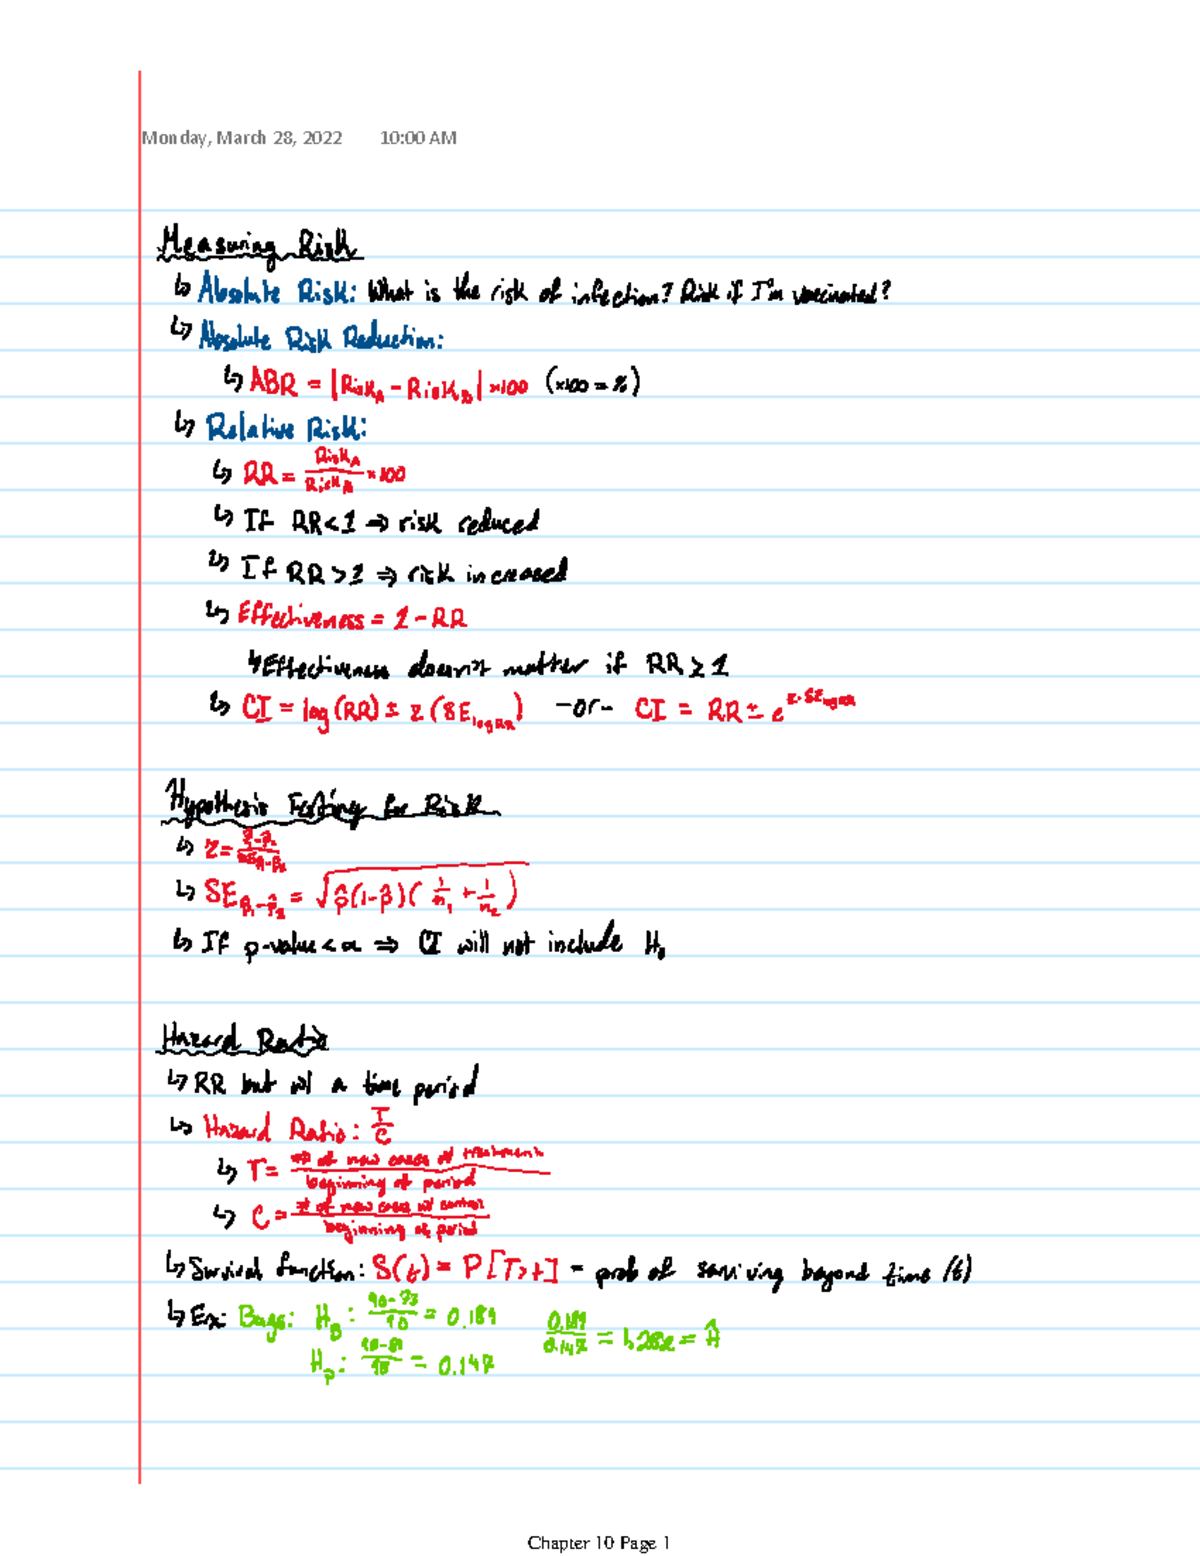 Monday, March 28, 2022 10:00 AM
Measuring Risk
↳ Absolute Risk: What is the risk of infection? Risk if I'm vaccinated?
↳ Absolute Risk Reduction:
↳ ABR = |Risk_A - Risk_B| ×100 (×100 = %)
↳ Relative Risk:
↳ RR = Risk_A / Risk_A ×100
↳ If RR < 1 ⇒ risk reduced
↳ If RR > 1 ⇒ risk increased
↳ Effectiveness = 1 - RR
↳ Effectiveness doesn't matter if RR ≥ 1
↳ CI = log(RR) ± z(SE_logRR) -or- CI = RR ± e^z·SE_logRR
Hypothesis Testing for Risk
↳ Z =
↳ SE_p̂₁-p̂₂ = √p̂(1-p̂)(1/n₁ + 1/n₂)
↳ If p-value < α ⇒ CI will not include H₀
Hazard Ratio
↳ RR but w/ a time period
↳ Hazard Ratio: T/C
↳ T = # of new cases of treatment / beginning of period
↳ C = # of new cases w/ control / beginning of period
↳ Survival function: S(t) = P[T>t] = prob of surviving beyond time (t)
↳ Ex: Bags: H_B: 90-73 / 90 = 0.189 0.189 / 0.147 = = Ĥ
H_p: = 0.147
Chapter 10 Page 1